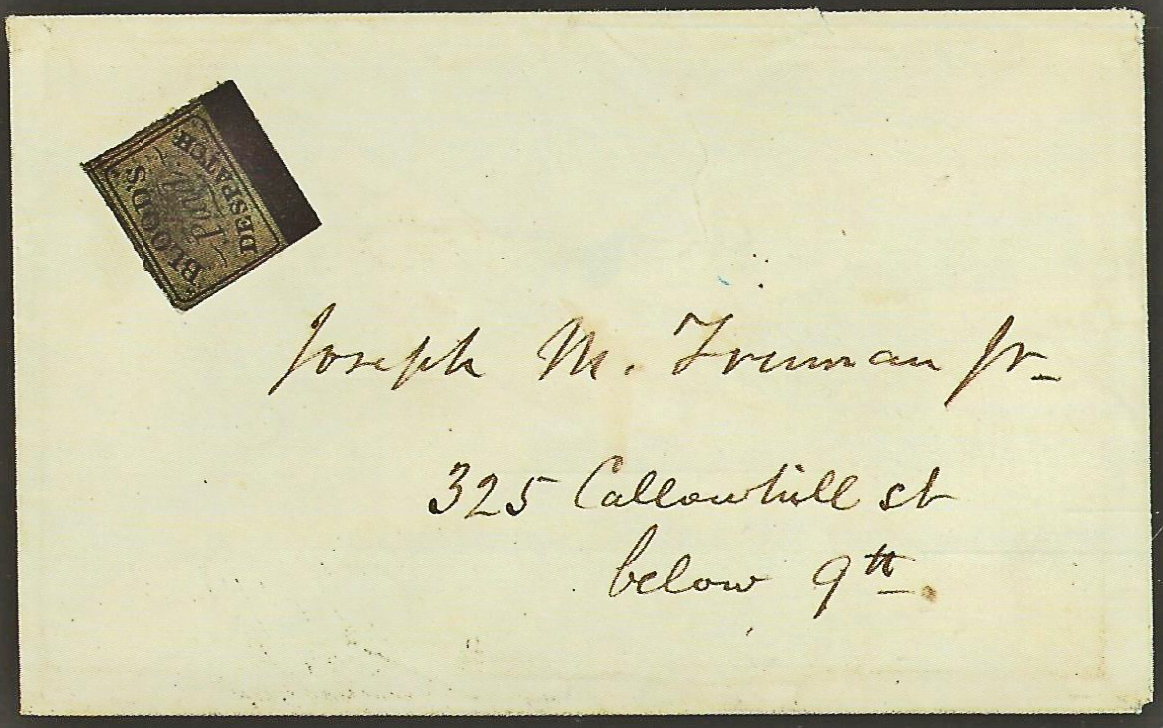 BLOOD'S
Paid
DESPATCH.
Joseph M. Truman Jr.
325 Callowhill st
below 9th.